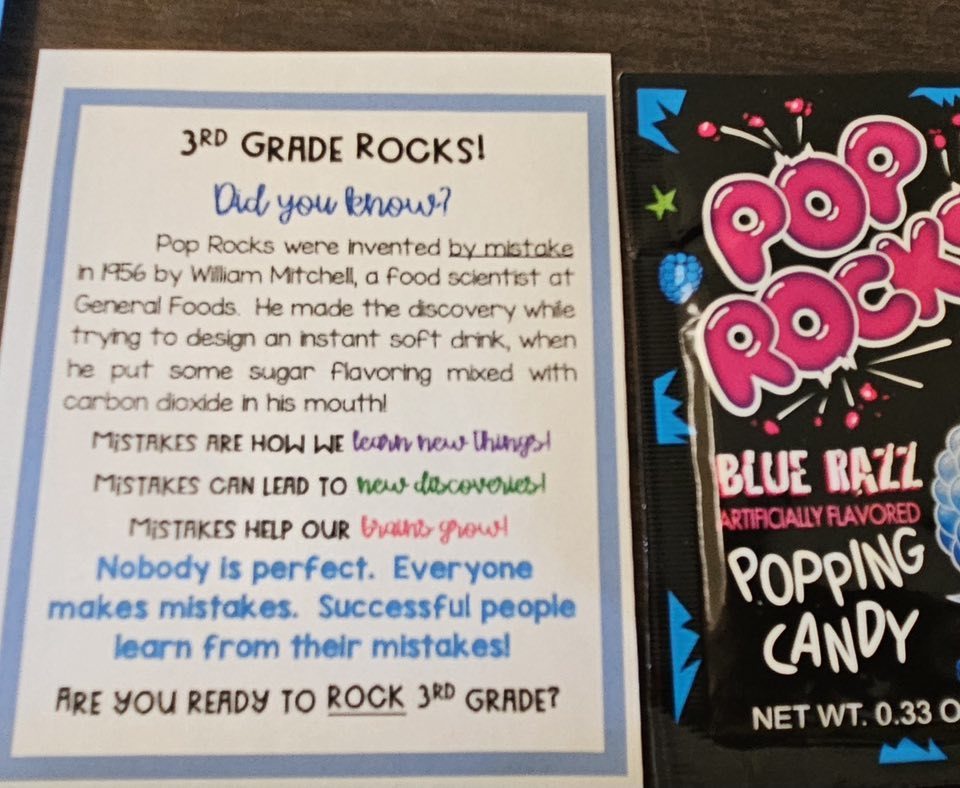 3RD GRADE ROCKS!
Did you know?
Pop Rocks were invented by mistake
in 1956 by William Mitchell, a food scientist at
General Foods. He made the discovery while
trying to design an instant soft drink, when
he put some sugar flavoring mixed with
carbon dioxide in his mouth!
MISTAKES ARE HOW WE learn new things!
MISTAKES CAN LEAD TO new discoveries!
MISTAKES HELP OUR brains grow!
Nobody is perfect. Everyone
makes mistakes. Successful people
learn from their mistakes!
ARE YOU READY TO ROCK 3RD GRADE?
POP
ROCKS
BLUE RAZZ
ARTIFICIALLY FLAVORED
POPPING
CANDY
NET WT. 0.33 O